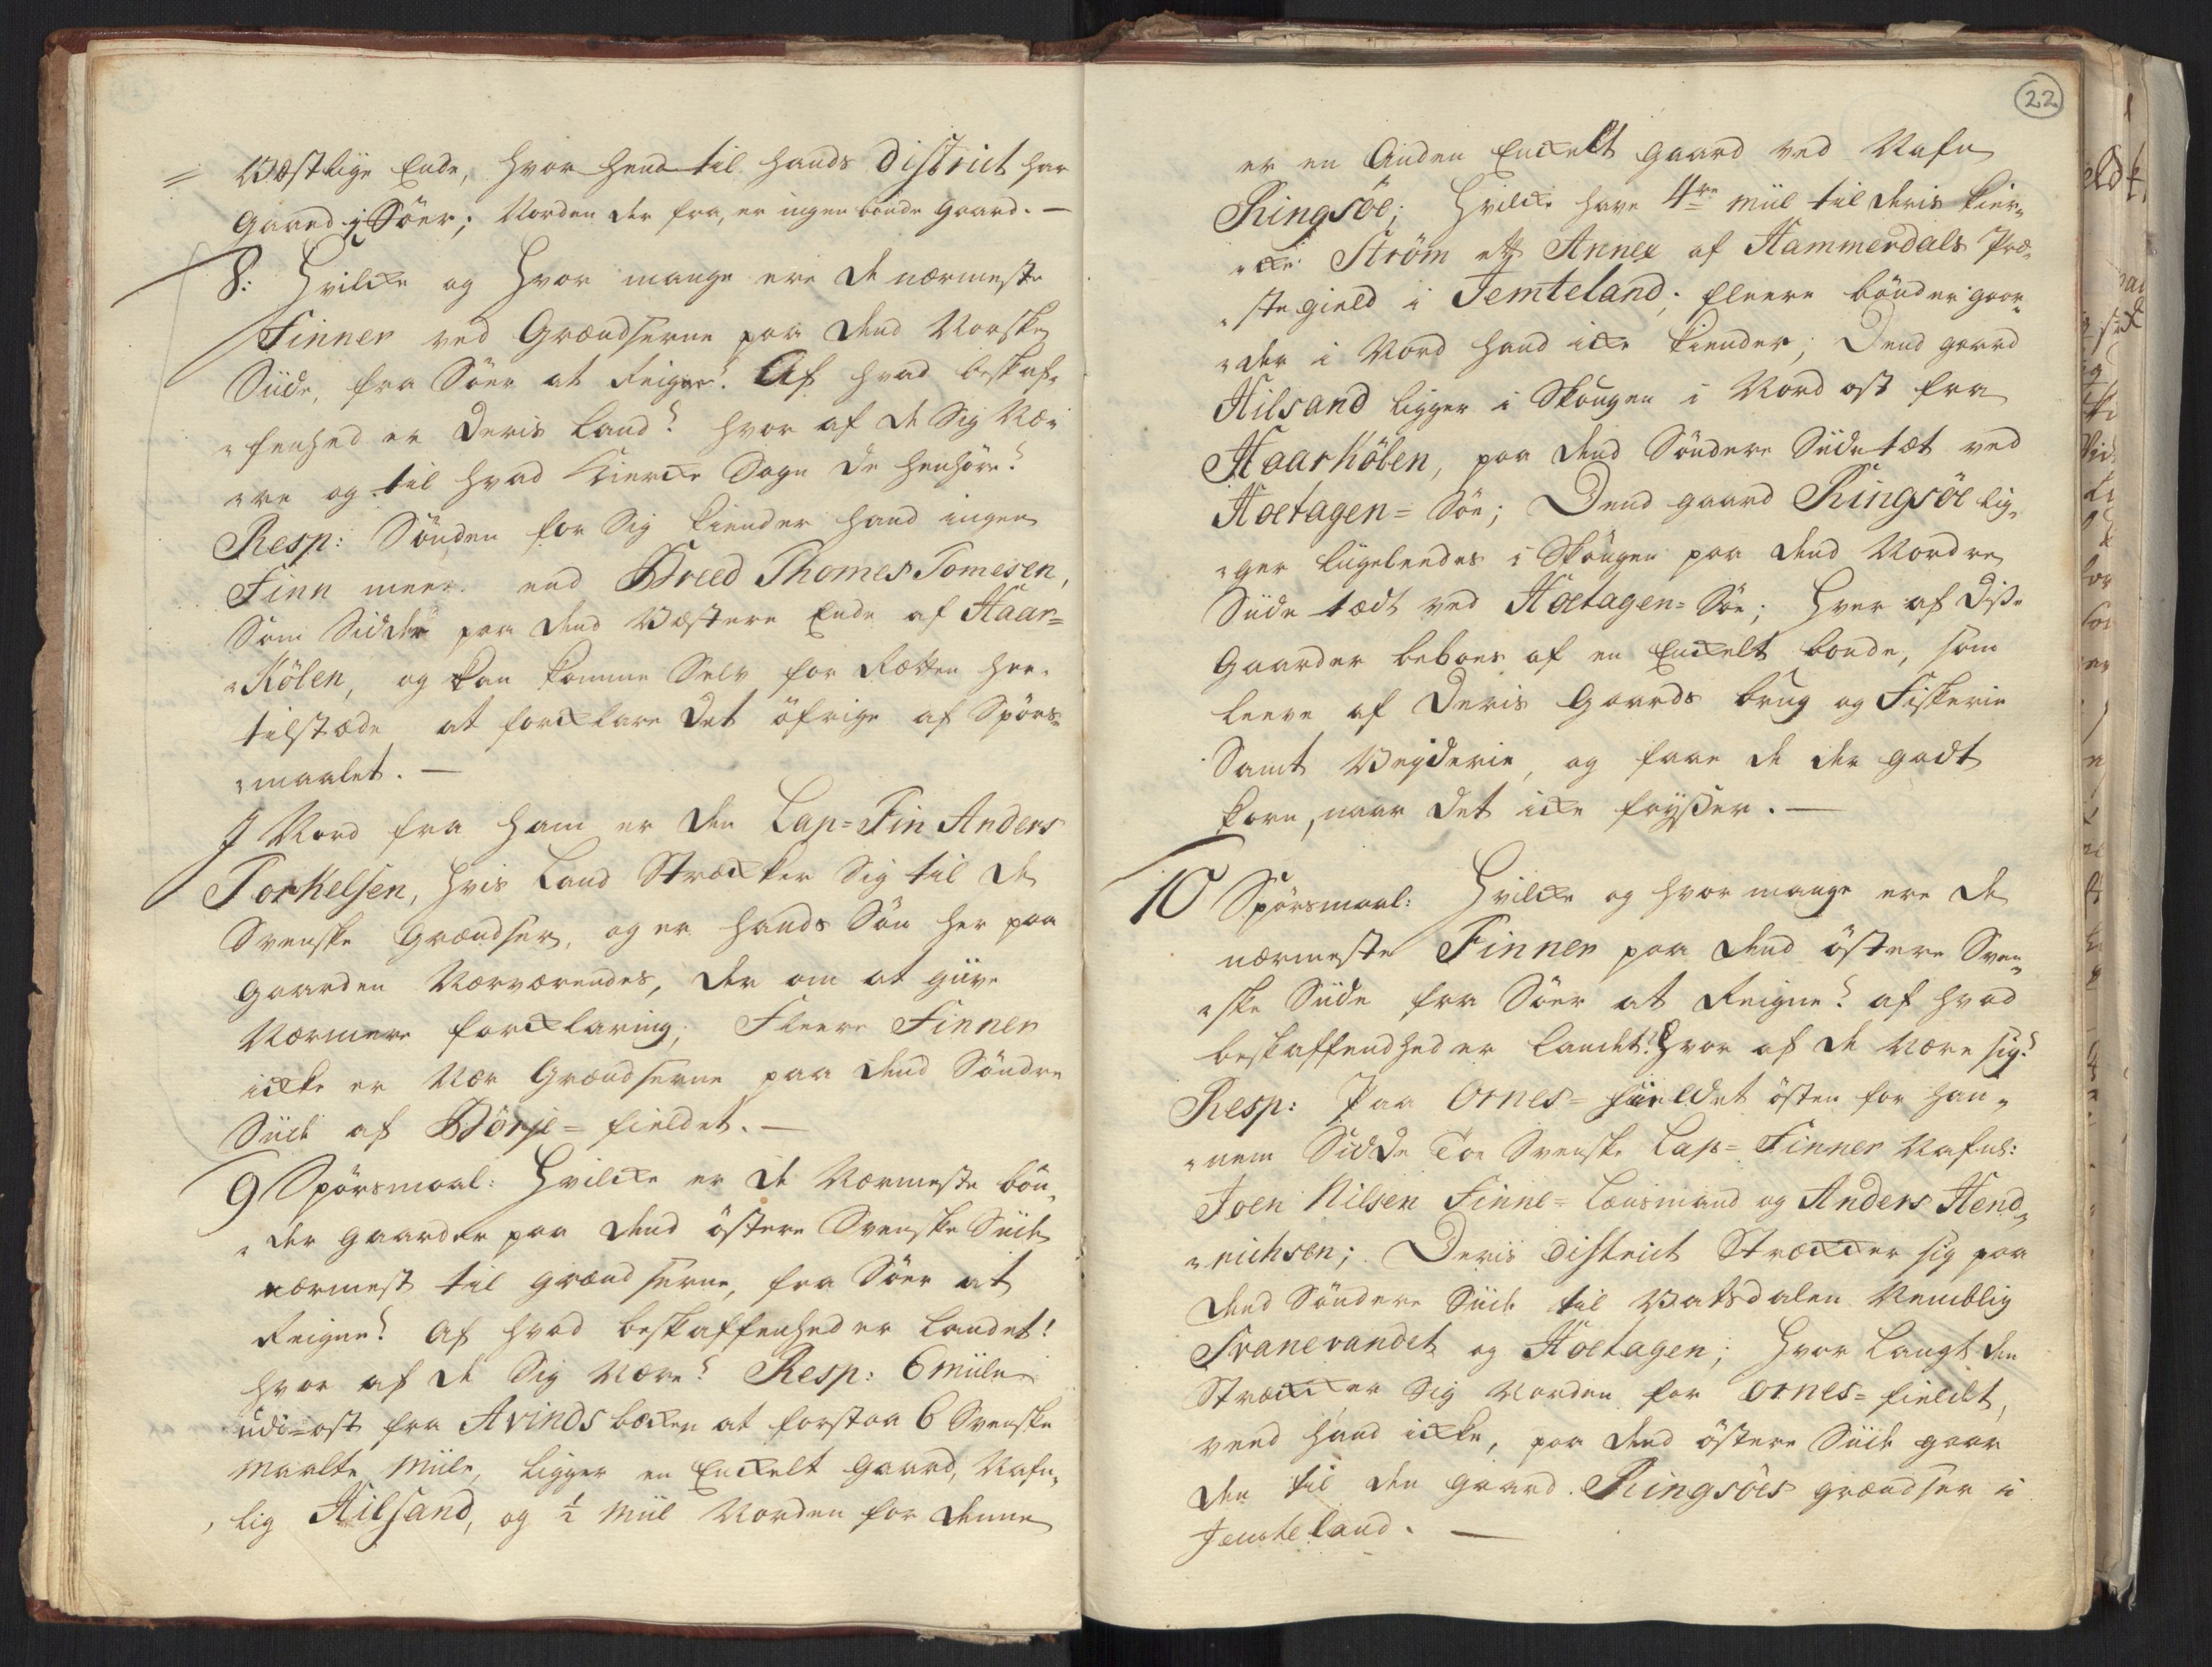 = Væstlige Ende, hvor hend til hands District har
Gaard j Söer; Norden der fra, er ingen bonde Gaard. —
8: Hvilcke og Hvor mange ere de nærmeste
Finner ved Grændserne paa dend Norske
Siide, fra Söer at Reigne? Af hvad beskaf„
„fenhed er Deris Land? hvor af de Sig Næ„
„re og til hvad Kiercke Sogn de henhöre?
Resp: Sönden for Sig kiender hand ingen
Finn meer end Breed Thomes Tomesen,
Som Sidder paa dend Væstere Ende af Haar=
„Kölen, og kan komme Selv for Rætten her„
tilstæde at forcklare det öfrige af Spörs„
„maalet. —
I Nord fra ham er den Lap=Fin Anders
Torkelsen, hvis Land Stræcker Sig til de
Svenske Grændser, og er hands Sön her paa
Gaarden Nærværendes, der om at giive
Nærmere forcklaring; Fleere Finner
icke er Nær Grændserne paa dend Söndre
Siide af Börje=fieldet. —
9 Spörsmaal: Hvilcke er de Nærmeste bön„
„der gaarder paa dend östere Svenske Siide
nærmest til grændserne, fra Söer at
Reigne? Af hvad beskaffenhed er Landet!
hvor af de Sig Nære? Resp: 6 miile
udi=ost fra Avindsbæcken at forstaa 6 Svenske
Maalte Miile, ligger en Enckelt Gaard, Nafn„
„lig Hilsand, og ½ Miil Norden for denne
22
er en Anden Enckelt gaard ved Nafn
Ringsöe; Hvilcke have 4re Miil til deris kier„
„cke Ström ett Annex af Hammerdals Præ„
„stegield i Jemteland; fleere bönder gaar„
„der i Nord hand icke kiender; Dend gaard
Hilsand ligger i Skougen i Nord ost fra
Haarkölen, paa dend Söndere Siide tæt ved
Hoetagen=Söe; Dend gaard Ringsöe lig„
„ger liigeleedes i Skougen paa dend Nordre
Siide tædt ved Hoetagen=Söe; Hver af Disse
Gaarder beboes af en Enckelt bonde, som
leeve af Deris Gaards brug og Fiskerie
Samt Vejderie, og faae de der godt
korn, naar det icke frysser. —
10 Spörsmaal: Hvilcke og hvor mange ere de
nærmeste Finner paa dend östere Sven„
„ske Siide fra Söer at Reigne? af hvad
beskaffendhed er Landet? Hvor af de Nære sig?
Resp: Paa Ornes=fieldet östen for han„
„nem Sidde Toe Svenske Lap=Finner Nafnl:
Joen Nilsen Finne=Lænsmand og Anders Hend„
„richsen; Deris District Stræcker sig paa
dend Söndere Siide til Vatsdalen Nemblig
Svanevandet og Hoetagen; Hvor Langt den
Stræcker Sig Norden for Ornes=fieldet,
veed hand icke, paa dend östere Siide gaar
den til den gaard Ringsöes grændser i
Jemteland. —